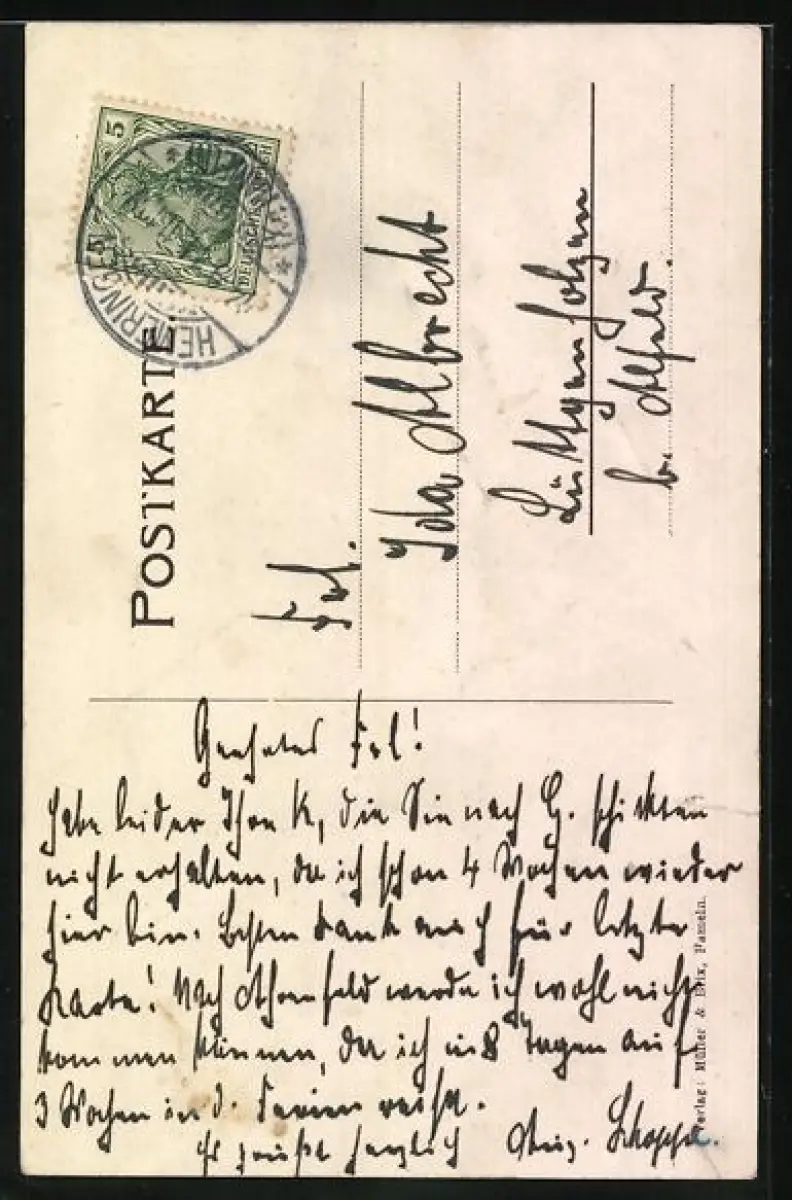 POSTKARTE.
5
DEUTSCHES REICH
HEMERINGEN
Frl.
Ida Albrecht
Lüttgenholzen
b. Alfeld.
Geehrtes Frl!
Habe leider Ihre K, die Sie nach G. schickten
nicht erhalten, da ich schon 4 Wochen wieder
hier bin. Besten Dank auch für letzte
Karte! Nach Ahrenfeld werde ich wohl nicht
kommen können, da ich in 8 Tagen auf
3 Wochen in d. Ferien reise.
Es grüßt herzlich Aug. Schoppe.
Verlag: Müller & Brix, Hameln.